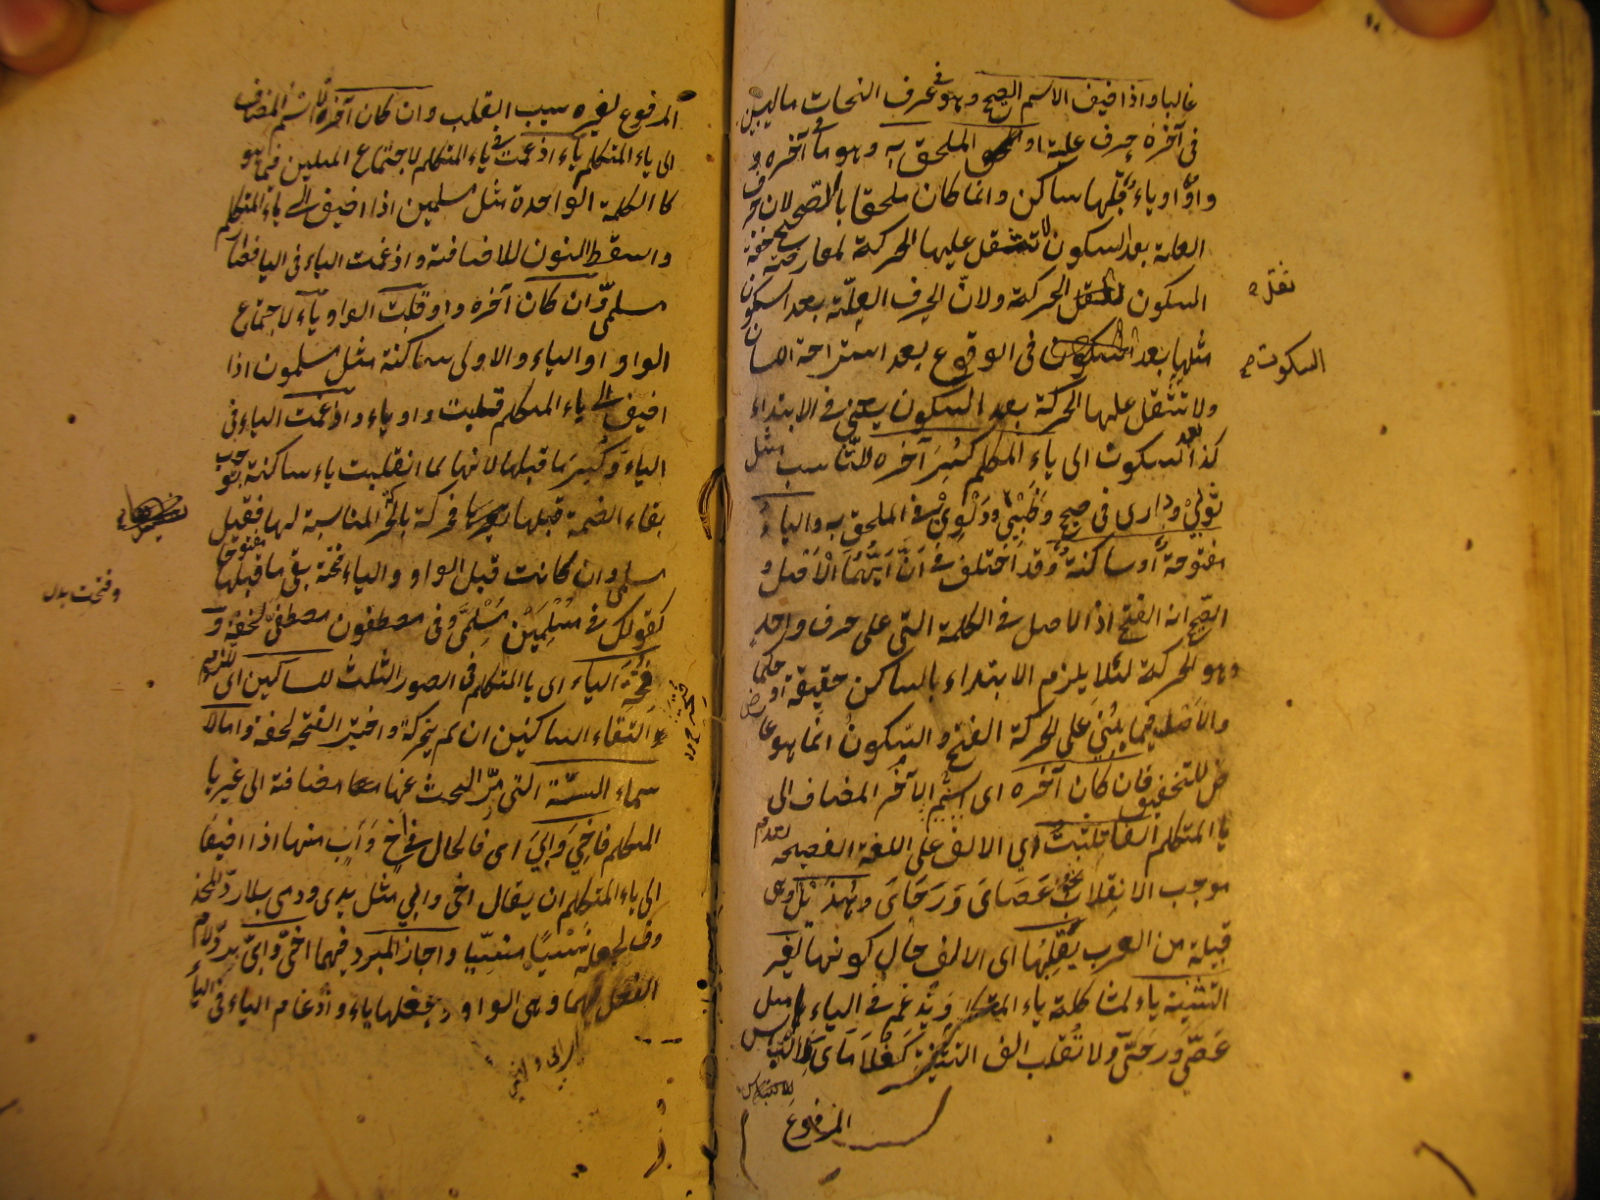 غالبا واذا اضيف الاسم الصحيح وهو في عرف النحات ما ليس
في آخره حرف علة او الملحق به وهو ما في آخره
واو او ياء قبلها ساكن وانما كان ملحقا بالصحيح لان حرف
العلة بعد السكون لا تثقل عليها الحركة لمعارضة خفة
السكون ثقل الحركة ولان الحرف العلة بعد السكون
مثلها بعد السكوت في الوقوع بعد استراحة اللسان
ولا تثقل عليها الحركة بعد السكون يعني في الابتداء
كذا بعد السكوت الى ياء المتكلم كسر آخره للتناسب مثل
ثوبي وداري في صحيح وظبيي ودلوي في الملحق به والياء
مفتوحة او ساكنة وقد اختلف في ان ايتهما الاصل و
الصحيح انه الفتح اذ الاصل في الكلمة التي على حرف واحد
وهو الحركة لئلا يلزم الابتداء بالساكن حقيقة او حكما
والاصل فيما بني على الحركة الفتح والسكون انما هو عارض
للتخفيف فان كان آخره اى اسم الآخر المضاف الى
يا المتكلم الفا تثبت اي الالف على اللغة الفصيحة لعدم
موجب الانقلاب نحو عصاى ورحاى وهذيل وهي
قبيلة من العرب يقلبها اى الالف حال كونها لغير
التثنية ياء لمشاكلة ياء المتكلم ويدغم في الياء مثل
عصي ورحي ولا تقلب الف التثنية كغلاماى لالتباس
المرفوع
نقل صح
السكوت صح
المرفوع لغيره سبب القلب وان كان آخره آخر الاسم المضاف
الى ياء المتكلم ياء ادغمت في ياء المتكلم لاجتماع المثلين فيما هو
كالكلمة الواحدة مثل مسلمين اذا اضيف الى ياء المتكلم
واسقط النون للاضافة وادغمت الياء في اليا فصار
مسلمي وان كان آخره واو قلبت الواو ياء لاجتماع
الواو والياء والاولى ساكنة مثل مسلمون اذا
اضيف الى ياء المتكلم قلبت واو ياء وادغمت الياء في
الياء وكسر ما قبلها لانها لما انقلبت ياء ساكنة
بقاء الضمة قبلها فحركة بالحركة المناسبة لها فقيل
مسلمي وان كانت قبل الواو والياء فتحة بقي ما قبلها مفتوحا
كقولك في مسلمين مسلمي وفي مصطفون مصطفي لخفة و
فتحت الياء اى يا المتكلم في الصور الثلث للساكنين اى للزوم
التقاء الساكنين ان لم يحركة واختير الفتحة لخفة واما الا
سماء الستة التي مر البحث عنها مضافة الى غير يا
المتكلم فاخي وابي اى فالحال في اخ واب منها اذا اضيفا
الى ياء المتكلم ان يقال اخى وابي مثل يدى ودمى بلا رد المحذ
وف لجعله نسيا منسيا واجاز المبرد فيهما اخي وابي برد لام
الفعل فيهما وهى الواو وجعلها ياء وادغام الياء في اليا
وفتحت بدل